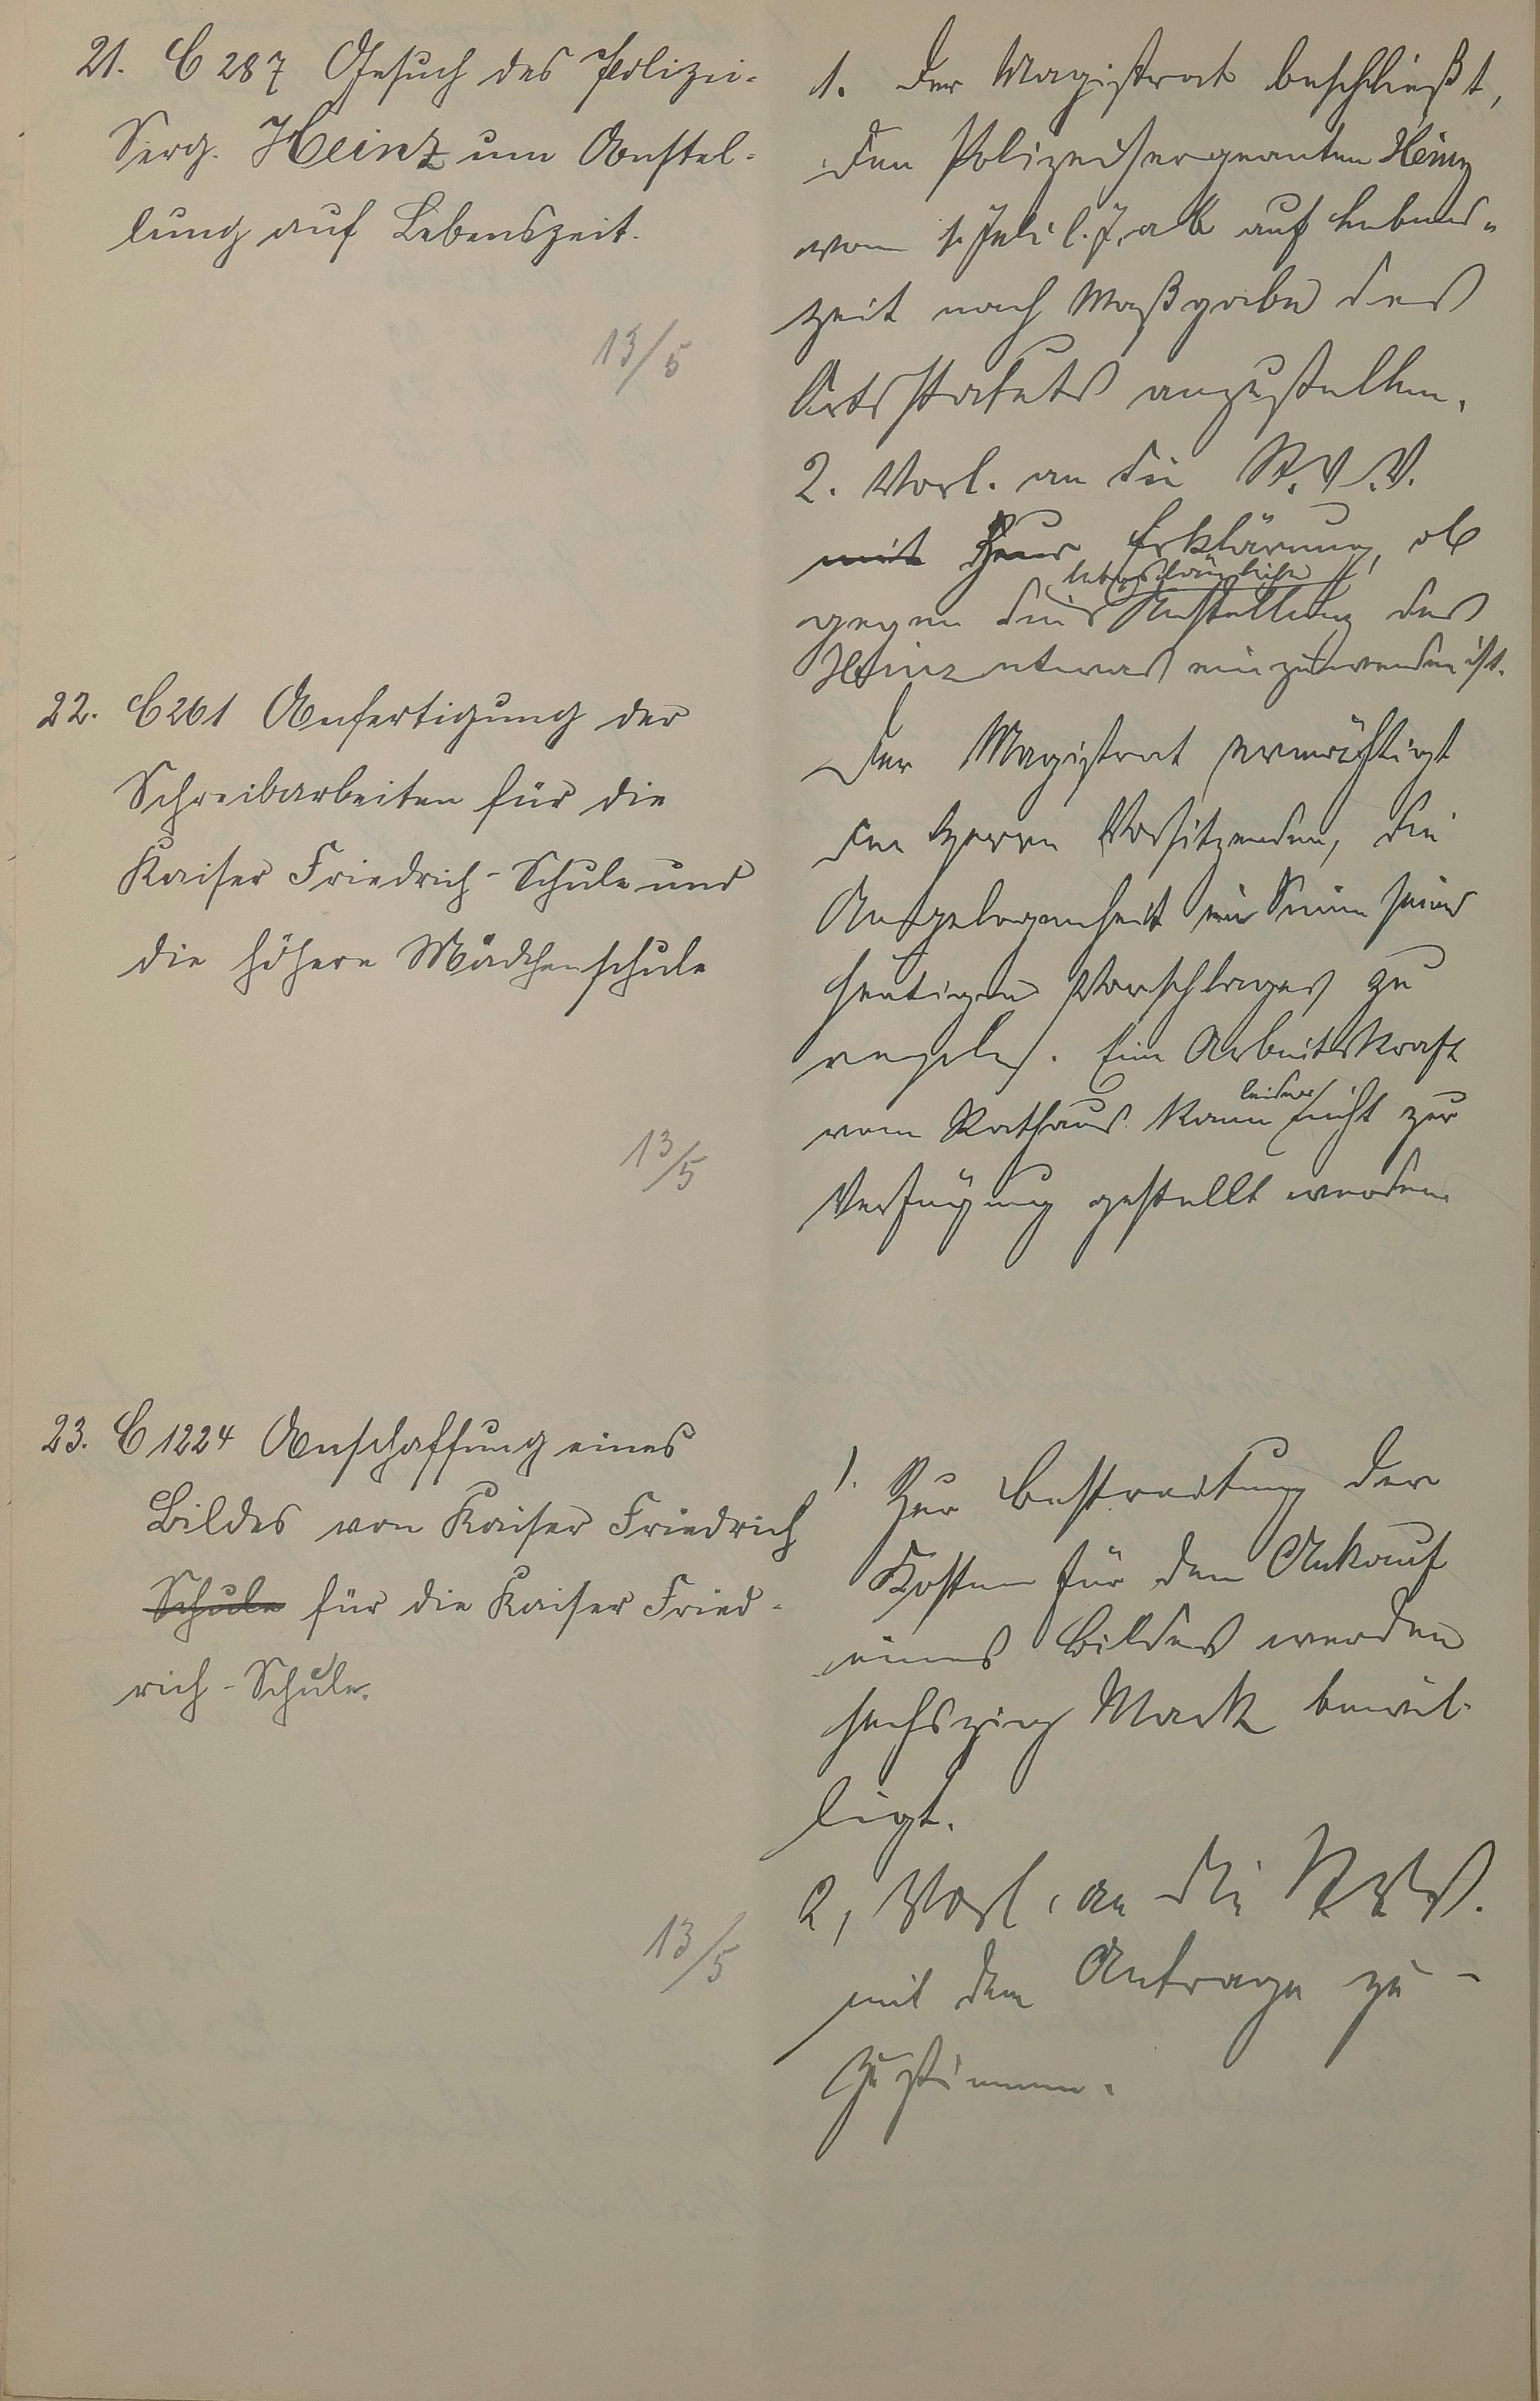 21. C 287 Gesuch des Polizei-
Serg. Heinz um Anstel-
lung auf Lebenszeit.
13/5
1. Der Magistrat beschließt,
den Polizeisergeanten Heinz
vom 1. Juli l. J. ab auf Lebens-
zeit nach Maßgabe des
Ortsstatuts anzustellen.
2. Vorl. an die St.V.V.
mit zur Erklärung, ob
lebenslängliche
gegen die Anstellung des
Heinz etwas einzuwenden ist.
22. C 261 Anfertigung der
Schreibarbeiten für die
Kaiser Friedrich-Schule und
die höhere Mädchenschule
13/5
Der Magistrat ermächtigt
den Herrn Vorsitzenden, die
Angelegenheit im Sinne seines
heutigen Vorschlages zu
regeln. Eine Arbeitskraft
leider
vom Rathaus kann nicht zur
Verfügung gestellt werden
23. C 1224 Anschaffung eines
Bildes von Kaiser Friedrich
Schule für die Kaiser Fried-
rich-Schule.
13/5
1. Zur Bestreitung der
Kosten für den Ankauf
eines Bildes werden
sechszig Mark bewil-
ligt.
2, Vorl. an die StVV.
mit dem Antrage zu-
zustimmen.